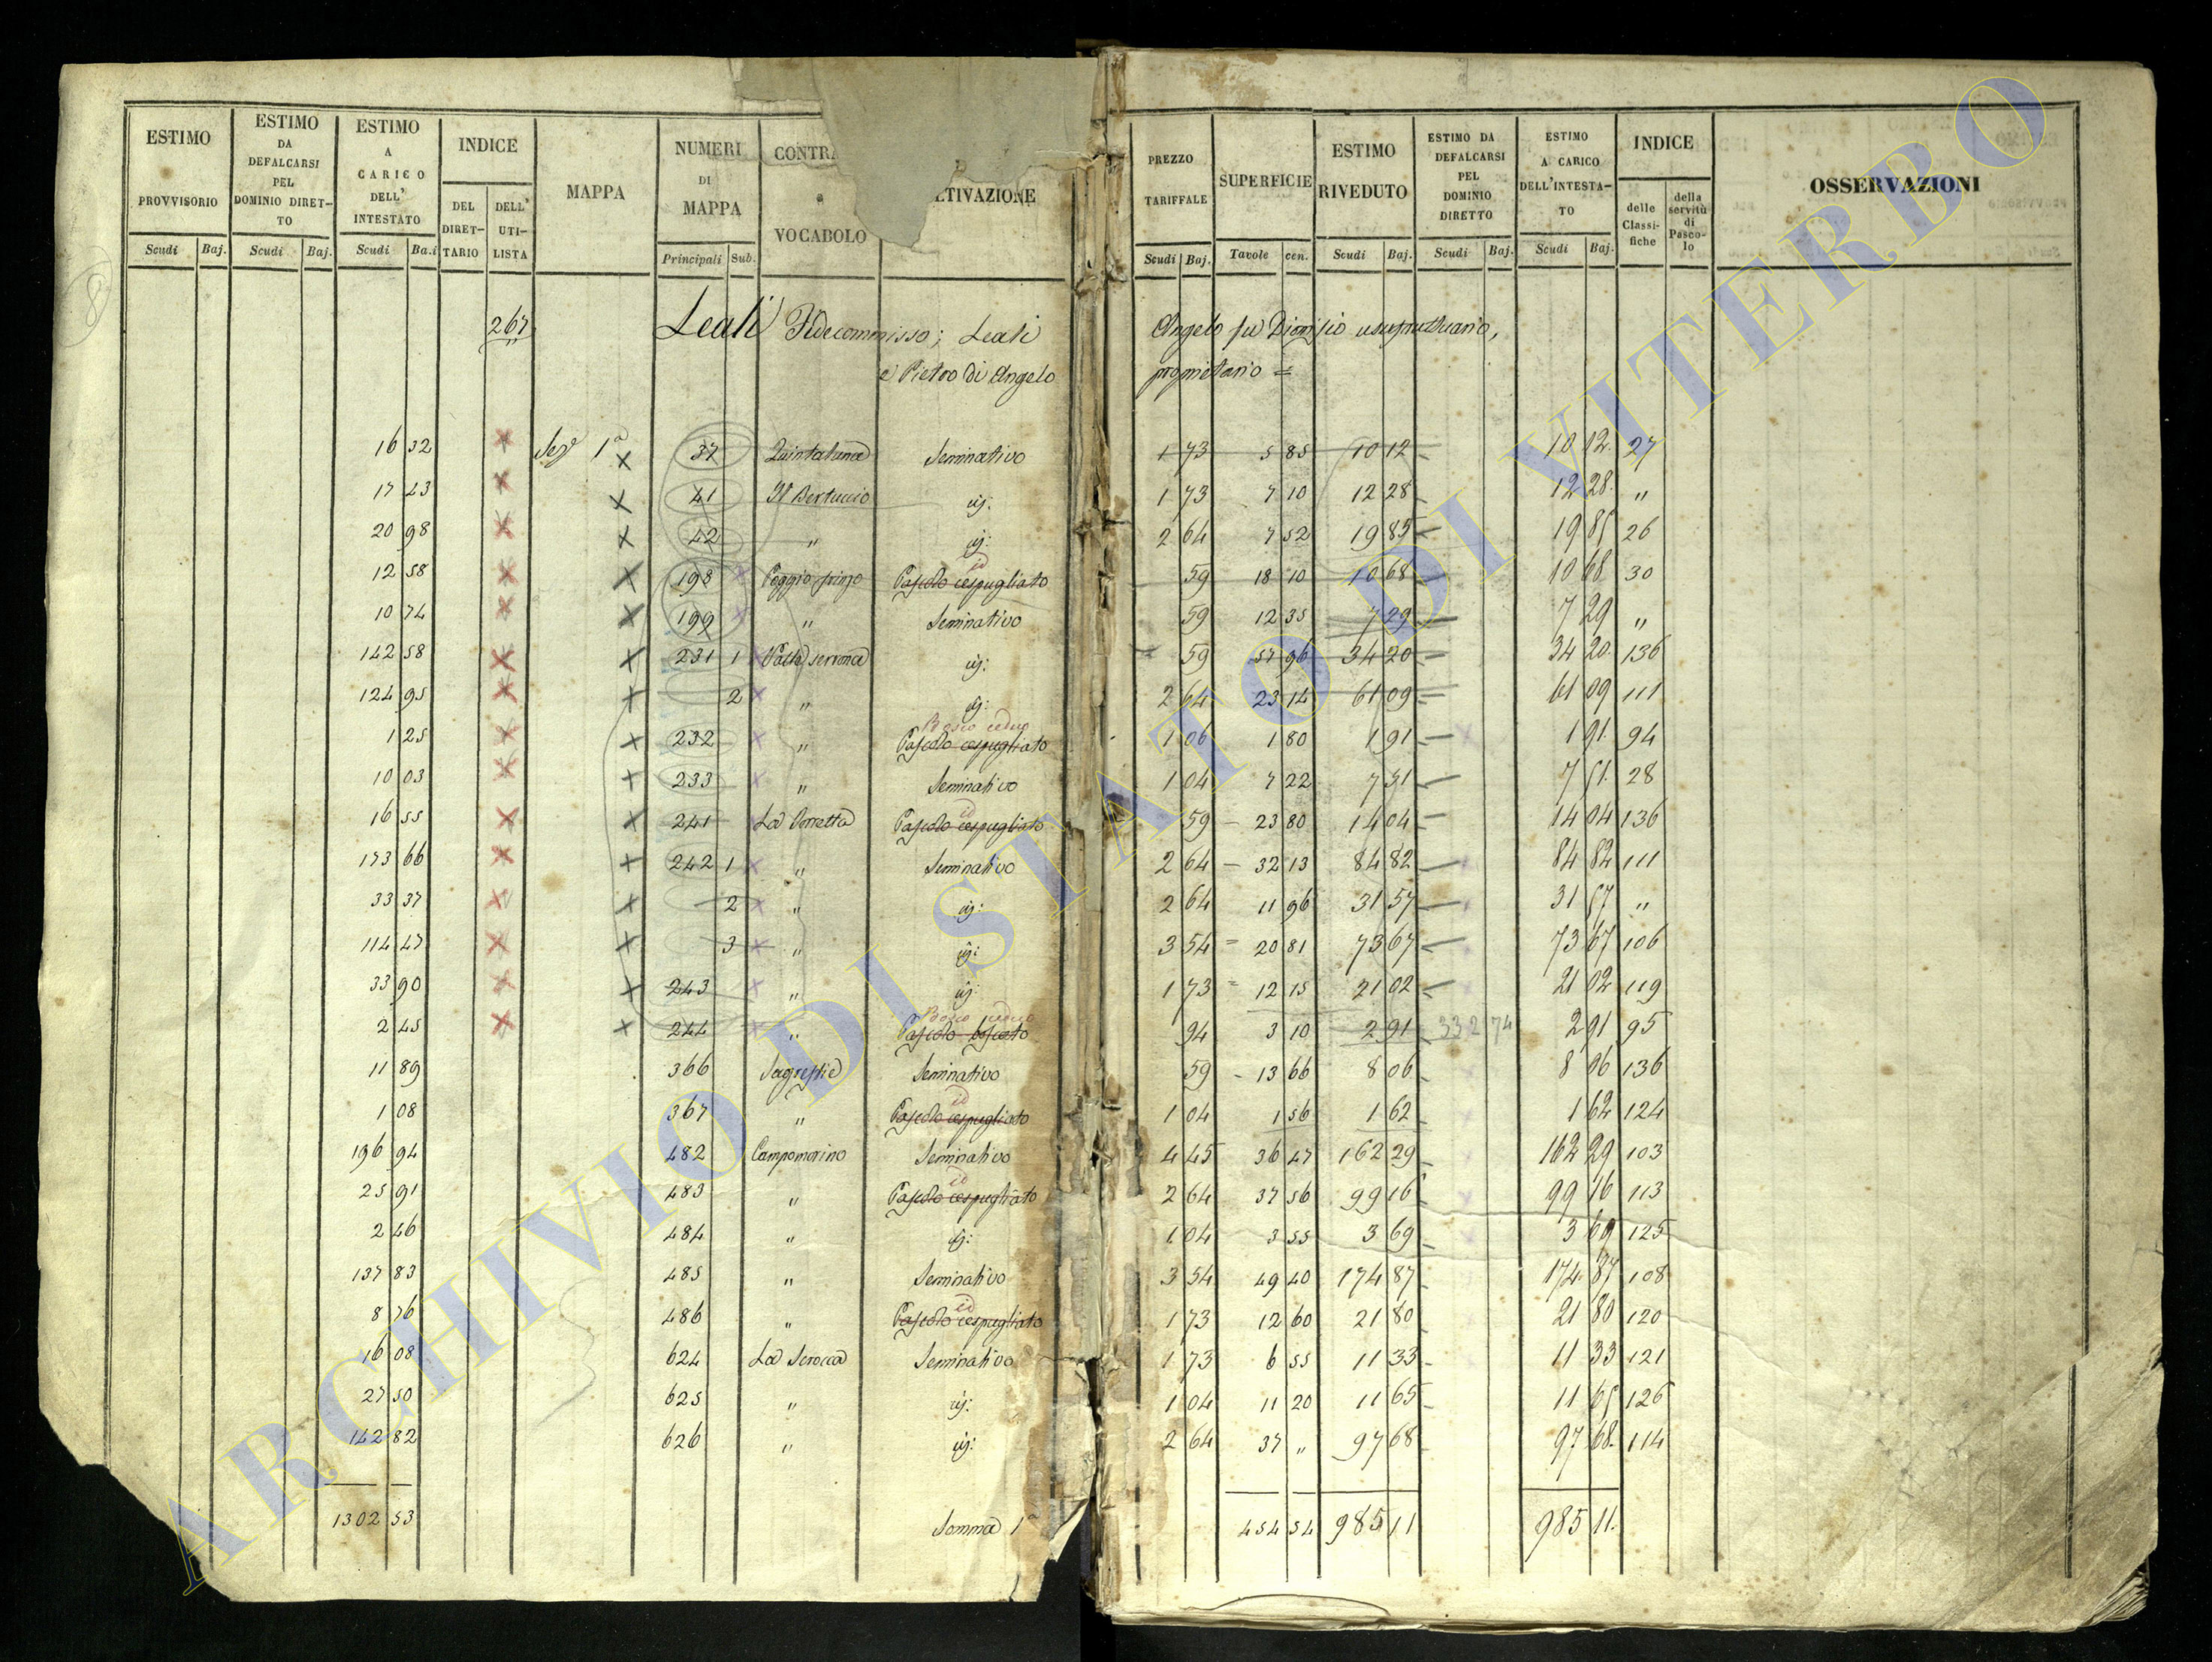 ESTIMO PROVVISORIO Scudi Baj.
ESTIMO DA DEFALCARSI PEL DOMINIO DIRET-TO Scudi Baj.
ESTIMO A CARICO DELL' INTESTATO Scudi Ba.i
INDICE DEL DIRET-TARIO DELL' UTI-LISTA
MAPPA
NUMERI DI MAPPA Principali Sub.
CONTRA VOCABOLO
LTIVAZIONE
PREZZO TARIFFALE Scudi Baj.
SUPERFICIE Tavole cen.
ESTIMO RIVEDUTO Scudi Baj.
ESTIMO DA DEFALCARSI PEL DOMINIO DIRETTO Scudi Baj.
ESTIMO A CARICO DELL'INTESTA-TO Scudi Baj.
INDICE delle Classi-fiche della servitù di Pasco-lo
OSSERVAZIONI
8
267 Leali Fidecommisso; Leali Angelo fu Dionisio usufruttuario,
e Pietro di Angelo proprietario =
16 32 Sez.e 1a 37 Quintaluna Seminativo 1 73 5 85 10 12 10 12 27
17 43 41 Il Bertuccio ij: 1 73 7 10 12 28 12 28 "
20 98 42 " ij: 2 64 7 52 19 85 19 85 26
12 58 198 Poggio spinzo Pascolo cespugliato id 59 18 10 10 68 10 68 30
10 74 199 " Seminativo 59 12 35 7 29 7 29 "
142 58 231 1 Seminativo ij: 59 57 96 34 20 34 20 136
124 95 2 " ij: 2 64 23 14 61 09 61 09 111
1 25 232 " Pascolo cespugliato Bosco ceduo 1 06 1 80 1 91 1 91 94
10 03 233 " Seminativo 1 04 7 22 7 51 7 51 28
16 55 241 La Porretta Pascolo cespugliato id 59 23 80 14 04 14 04 136
173 66 242 1 " Seminativo 2 64 32 13 84 82 84 82 111
33 37 2 " ij: 2 64 11 96 31 57 31 57 "
114 47 3 " ij: 3 54 20 81 73 67 73 67 106
33 90 243 " ij: 1 73 12 15 21 02 21 02 119
2 45 244 " Pascolo boscato Bosco ceduo 94 3 10 2 91 332 74 2 91 95
11 89 366 Sagrestia Seminativo 59 13 66 8 06 8 06 136
1 08 367 " Pascolo cespugliato id 1 04 1 56 1 62 1 62 124
196 94 482 Campomorino Seminativo 4 45 36 47 162 29 162 29 103
25 91 483 " Pascolo cespugliato id 2 64 37 56 99 16 99 16 113
2 46 484 " ij: 1 04 3 55 3 69 3 69 125
137 83 485 " Seminativo 3 54 49 40 174 87 174 87 108
8 76 486 " Pascolo cespugliato id 1 73 12 60 21 80 21 80 120
16 08 624 La Serocca Seminativo 1 73 6 55 11 33 11 33 121
27 50 625 " ij: 1 04 11 20 11 65 11 65 126
142 82 626 " ij: 2 64 37 " 97 68 97 68 114
1302 53 Somma 1a 454 54 985 11 985 11
ARCHIVIO DI STATO DI VITERBO